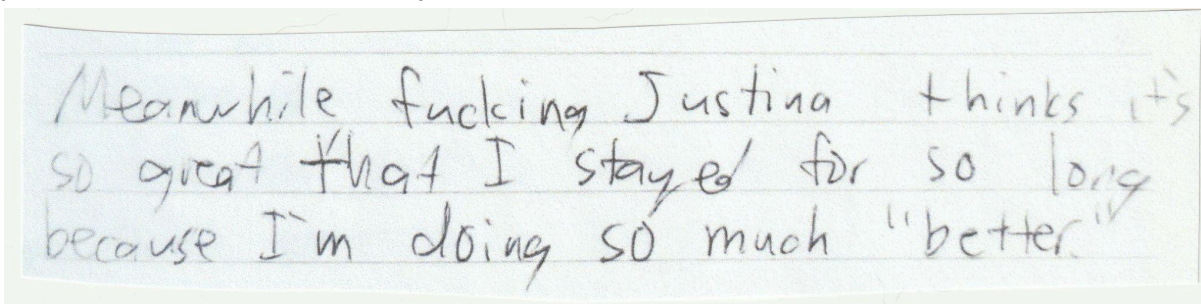 Meanwhile fucking Justina thinks it's
so great that I stayed for so long
because I'm doing so much "better."